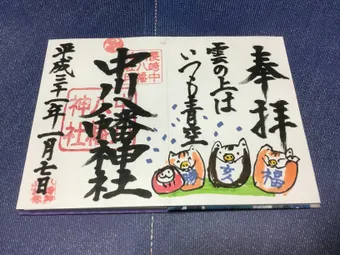 奉拝
雲の上は
いつも青空
勝
亥
福
長崎中川八幡神社
中川八幡神社
平成三十一年一月七日